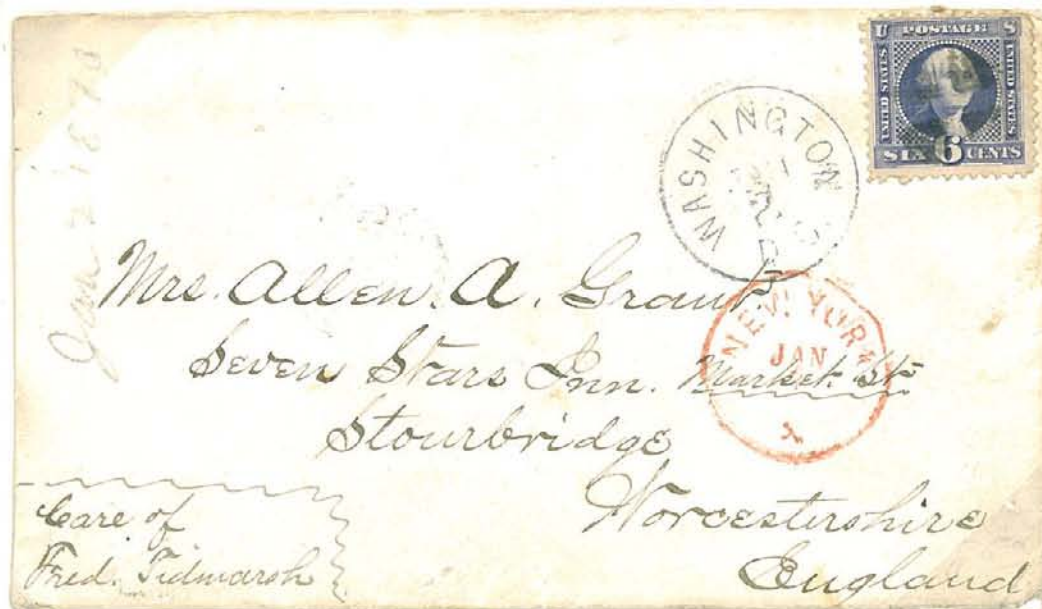 U POSTAGE S
UNITED STATES
UNITED STATES
SIX 6 CENTS
WASHINGTON
NEW YORK
JAN
Jan 2 1870
Mrs. Allen. A. Grant
Seven Stars Inn. Market. St
Stourbridge
Worcestershire
England
Care of
Fred. Tidmarsh